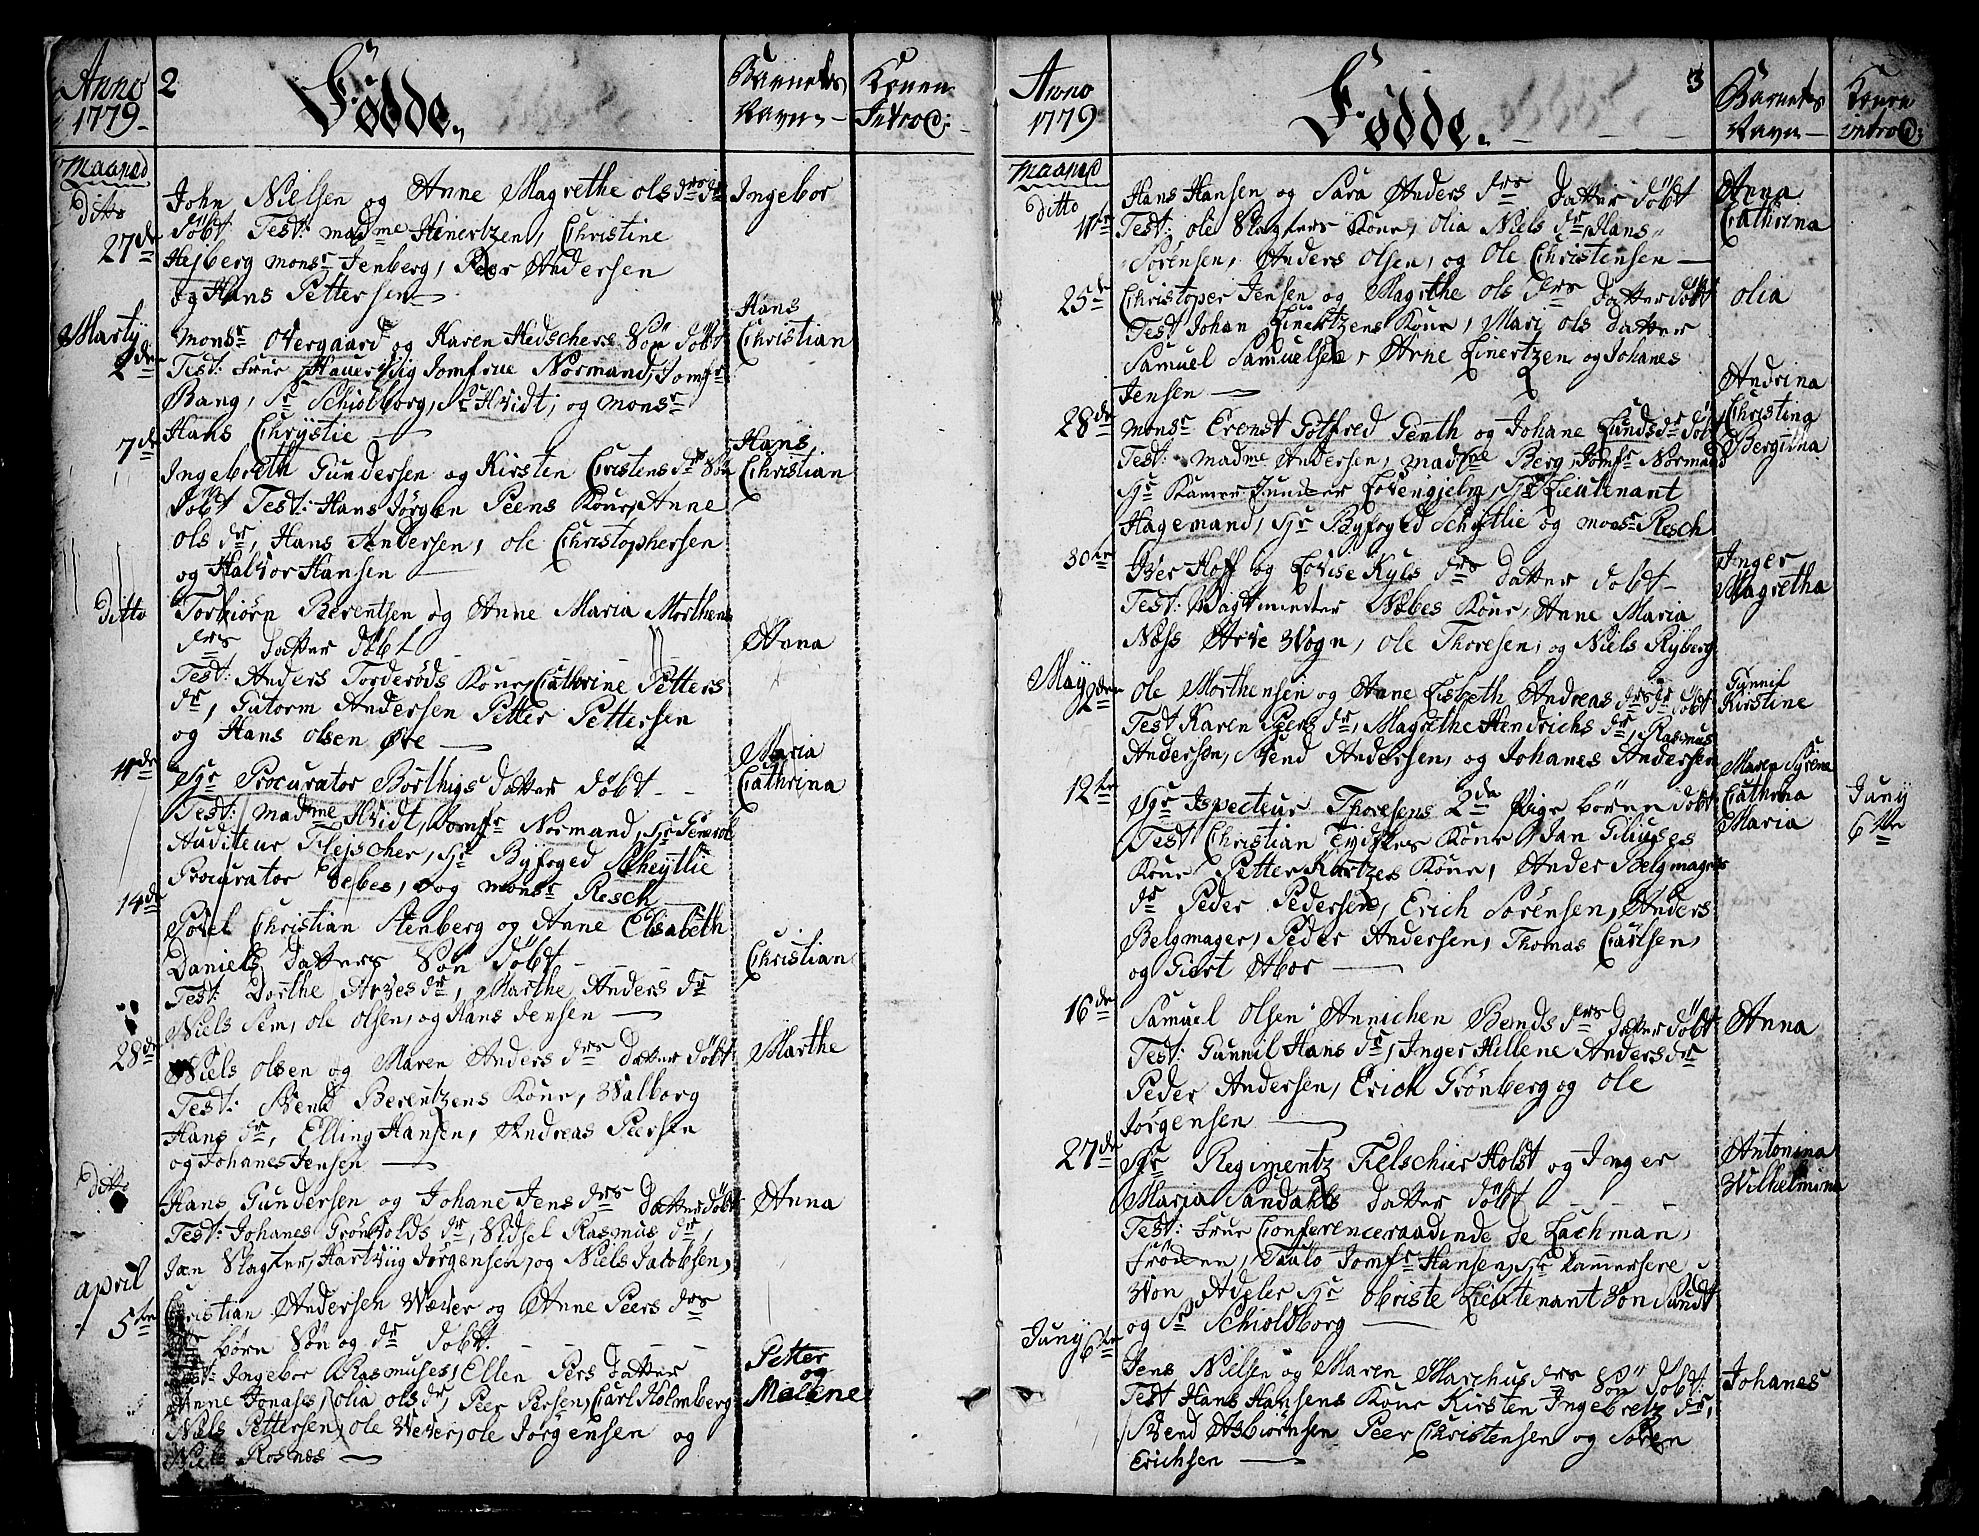 Anno 1779
2
Fødde.
Barnetes Navn
Konen Introd:
Maaned
ditto 27de
John Nielsen og Anne Magrethe ols drs dr
døbt Test: madme Hinertzen, Christine
Hejberg monsr Jenberg, Peer Andersen
og Hans Pettersen
Ingebor
Marty 2den
monsr Overgaard og Karen Hedschers Søn døbt
Test: Frue Jomfrue Normand, Jomfr
Bang, Sr Schiolborg, Sr Hvidt, og monsr
Hans Chrystie
Hans Christian
7de
Ingebreth Gundersen og Kirsten Christens drs Søn
døbt Test: Hans Jørgen Peens Kone, Anne
ols dr, Hans Andersen, ole Christophersen
og Halvor Hansen
Hans Christian
Ditto
Torbiørn Berentsen og Anne Maria Morthens
drs datter døbt
Test: Anders Torderøds Kone, Cathrine Petters
dr, Gutorm Andersen Petter Pettersen
og Hans olsen Øre
Anna
11de
Sgr Procurator Borthigs datter døbt
Test: madme Hvidt, Jomfr Normand, Sgr General
Auditeur Flejscher, Sgr Byfoged Scheytlie
Procurator Debes, og monsr Resch
Maria Cathrina
14de
Povel Christian Stenberg og Anne Elisabeth
Daniels datters Søn døbt
Test: Dorthe Arves dr, Marthe Anders dr
Niels Sem, ole olsen, og Hans Jensen
Christian
28de
Niels olsen og Maren Anders drs datter døbt
Test: Svend Berentzens Kone, Walborg
Hans dr, Elling Hansen, Andreas Peersen
og Johanes Jensen
Marthe
Ditto
Hans Gundersen og Johane Jens drs datter døbt
Test: Johanes Grønvolds dr, Sidsel Rasmus dr,
Jan Slagter, Hartvig Jørgensen, og Niels Jacobsen,
Anna
april 5te
Christian Andersen Wæver og Anne Peers drs
børn Søn og dr døbt.
Test: Ingebor Rasmuses, Ellen Pers datter
Anne Jonases, olia ols dr, Peer Persen, Carl Holmberg
Niels Pettersen, ole Wever, ole Jørgensen og
Niels Rosnæs
Petter og Malene
Anno 1779
Fødde.
3
Barnetes Navn
Konen introd:
Maaned
ditto 11te
Hans Hansen og Sara Anders drs datter døbt
Test: ole Slagters Kone, olia Niels dr, Hans
Sørensen, Anders olsen, og Ole Christensen
Anna Cathrina
25de
Christoper Jensen og Magrthe ols drs datter døbt
Test Johan Linertzens Kone, Mari ols datter
Samuel Samuelsen, Arne Linertzen og Johanes
Jensen
olia
28de
monsr Ernst Gotfred Genth og Johane Lunds dr døbt
Test: madme Andersen, madme Berg, Jomfr Normand
Sgr Kamer Junker Lovengjelm, Sgr Lieutenant
Hagemand, Sgr Byfoged Schijtlie og monsr Resch
Andrina Christina Bergitha
30te
Iver Hoff og Lovise Kyls drs datter døbt
Test: Vagtmester Vibes Kone, Anne Maria
Næss Arve Wogn, ole Thoresen, og Niels Ryberg
Inger Magretha
May 2den
ole Morthensen og Anne Lisbeth Andreas drs dr døbt
Test Karen Peers dr, Magrethe Hendrichs dr, Rasmus
Andersen, Svend Andersen, og Johanes Andersen
Gunnil Kirstine
12te
Sgr Ispecteur Thoresens 2de Pige børn døbt
Test Christian Tydskes Kone, Jan Gliuses
Kone Petter Kortzes Kone, Ander Belgmagers
dr Peder Pedersen, Erich Sørensen, Anders
Belgmager, Peder Andersen, Thomas Carlsen,
og Giert Abor
Maren Syrena Cathrina Maria
Juny 6te
16de
Samuel olsen Annichen Bends drs datter døbt
Test: Gunnil Hans dr, Inger Hellene Anders dr
Peder Andersen, Erich Grønberg og ole
Jørgensen
Anna
27de
Sgr Regimentz Felschier Holst og Inger
Maria Sandahls datter døbt
Test: Frue Conferenceraadinde de Lachman,
Frøden, Paulo Jomfr Hansen, Sgr Kammersere
Won Adeler Sgr obriste Lieutenant Von Sundt
og Sr Schioldborg
Antonina Wilhelmina
Juny 6te
Jens Nielsen og Maren Marchus drs Søn døbt:
Test Hans Hansens Kone Kirsten Ingebretz dr,
Svend Asbiørnsen Peer Christensen og Søren
Erichsen
Johanes